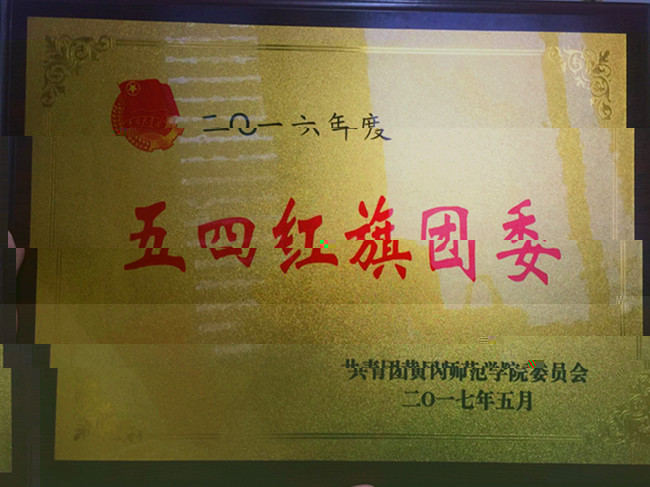 二〇一六年度
五四红旗团委
共青团黄冈师范学院委员会
二〇一七年五月